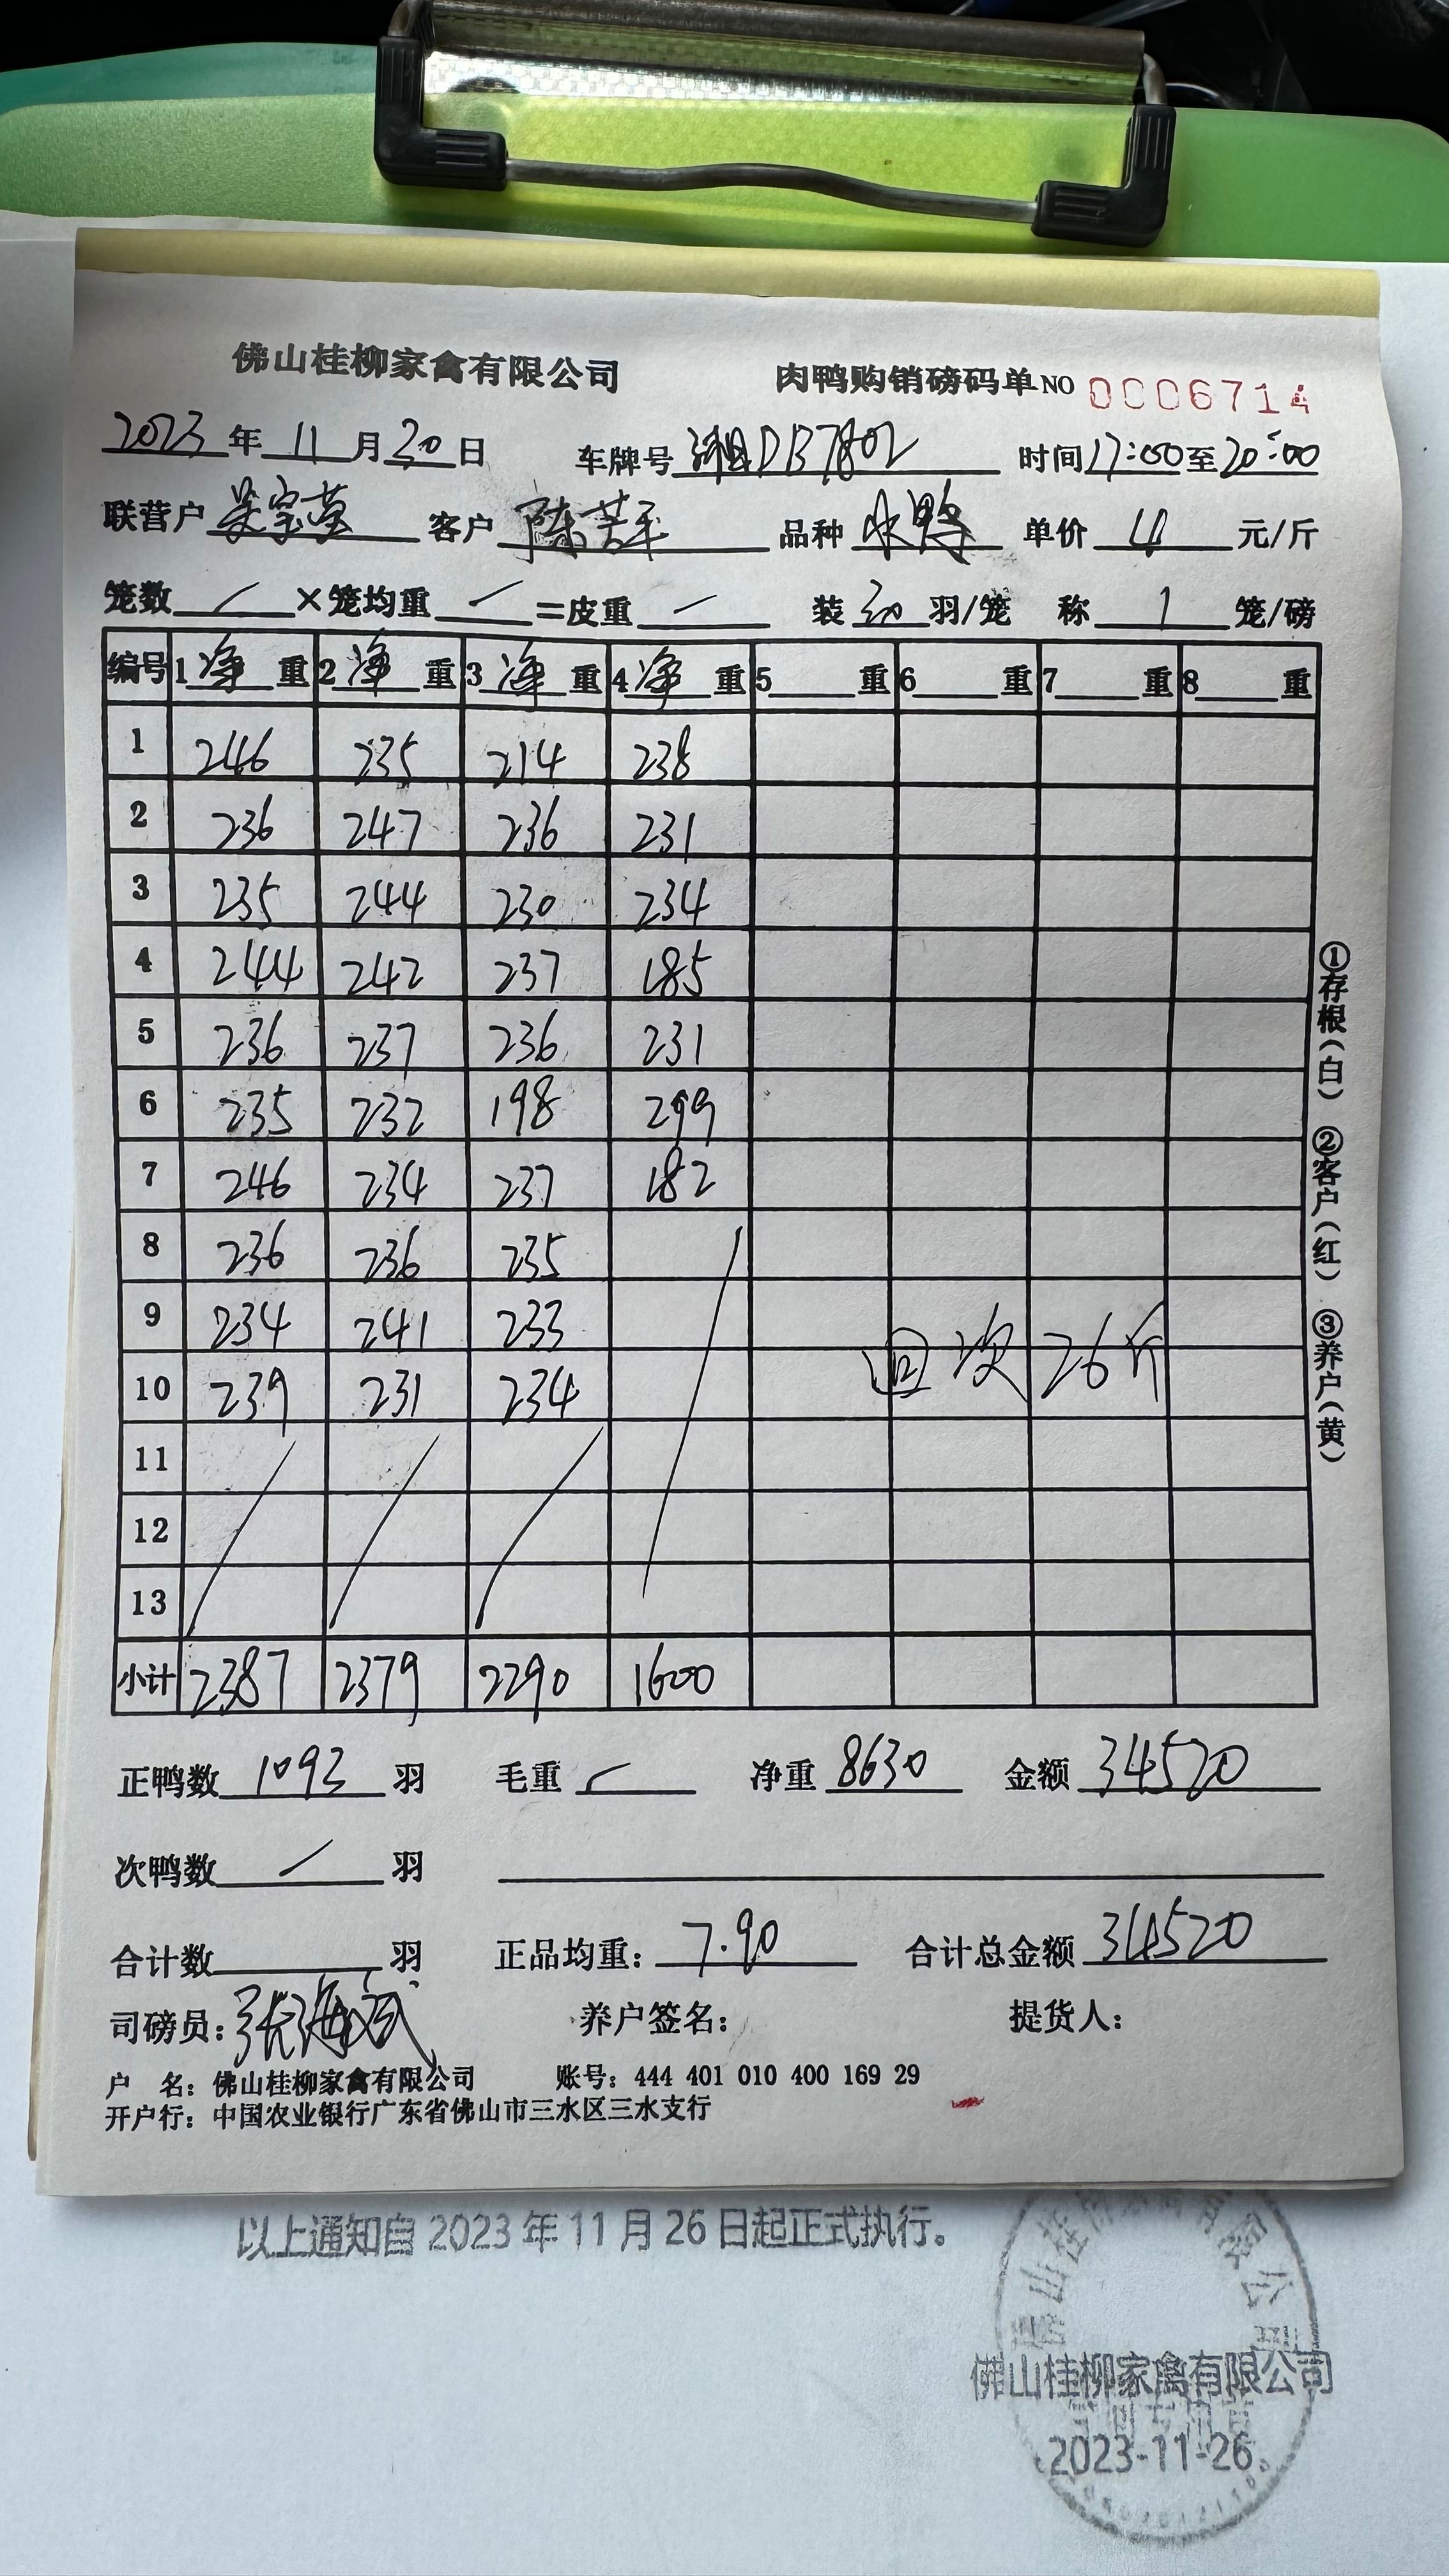 佛山桂柳家禽有限公司 肉鸭购销磅码单 NO 0006714
2023年11月30日 车牌号 湘DB7802 时间17:00至20:00
联营户 吴宝莹 客户 陈 品种 水鸭 单价 4 元/斤
笼数 / ×笼均重 / =皮重 / 装 30 羽/笼 称 1 笼/磅
编号 1净重 2净重 3净重 4净重 5 重 6 重 7 重 8 重
1 246 235 214 238
2 236 247 236 231
3 235 244 230 234
4 244 242 237 185
5 236 237 236 231
6 235 232 198 299
7 246 234 237 182
8 236 236 235
9 234 241 233
回次26斤
10 239 231 234
11
12
13
小计 2387 2379 2290 1600
①存根(白) ②客户(红) ③养户(黄)
正鸭数 1093 羽 毛重 / 净重 8630 金额 34520
次鸭数 / 羽
合计数 羽 正品均重: 7.90 合计总金额 34520
司磅员: 张海 养户签名: 提货人:
户 名: 佛山桂柳家禽有限公司 账号: 444 401 010 400 169 29
开户行: 中国农业银行广东省佛山市三水区三水支行
以上通知自 2023 年 11 月 26 日起正式执行。
佛山桂柳家禽有限公司
2023-11-26